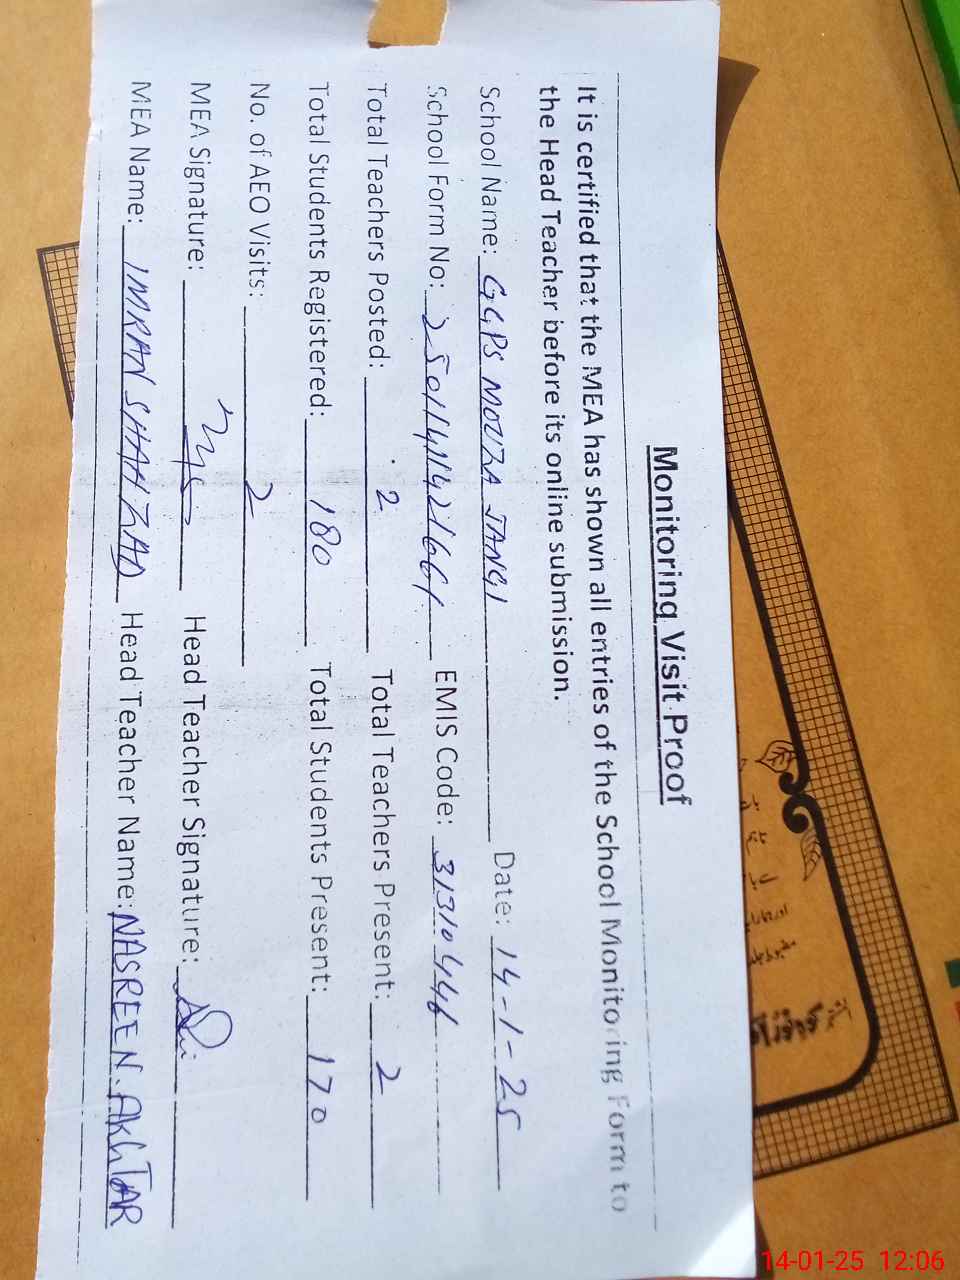 Monitoring Visit Proof
It is certified that the MEA has shown all entries of the School Monitoring Form to
the Head Teacher before its online submission.
School Name: GGPS MOUZA JANGI Date: 14-1-25
School Form No: EMIS Code: 31310446
Total Teachers Posted: 2 Total Teachers Present: 2
Total Students Registered: 180 Total Students Present: 170
No. of AEO Visits: 2
MEA Signature: Head Teacher Signature:
MEA Name: IMRAN SHAHZAD Head Teacher Name: NASREEN. AKHTAR
14-01-25 12:06